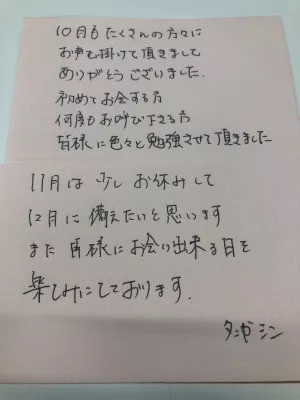 10月もたくさんの方々に
お声も掛けて頂きまして
ありがとうございました.
初めてお会する方
何度もお呼び下さる方
皆様に色々と勉強させて頂きました
11月は少しお休みして
12月に備えたいと思います
また皆様にお会い出来る日を
楽しみにしております.
タンガ シン